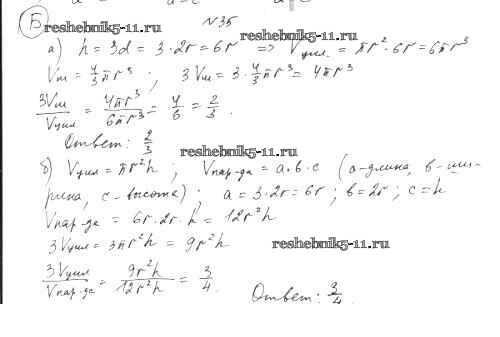 Б
resheba5-11.ru
№35
reshebnik5-11.ru
а) h = 3d = 3·2r = 6r => Vцил. = πr²·6r = 6πr³
Vш = 4/3 πr³ ; 3Vш = 3·4/3 πr³ = 4πr³
3Vш/Vцил = 4πr³/6πr³ = 4/6 = 2/3.
Ответ: 2/3
reshebnik5-11.ru
б) Vцил = πr²h ; Vпар-да = a·b·c (a-длина, b-ши-
рина, c-высота) ; a = 3·2r = 6r ; b = 2r ; c = h
Vпар-да = 6r·2r·h = 12r²h
3Vцил = 3πr²h = 9r²h
reshebnik5-11.ru
3Vцил/Vпар-да = 9r²h/12r²h = 3/4.
Ответ: 3/4